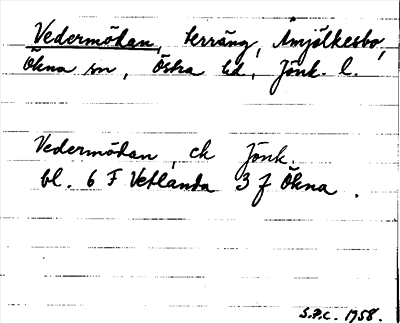 Vedermödan, terräng, Åmjölkesbo,
Ökna sn, Östra hd, Jönk. l.
Vedermödan, ek Jönk.
bl. 6 F Vetlanda 3 f Ökna.
S.P.C. 1958.